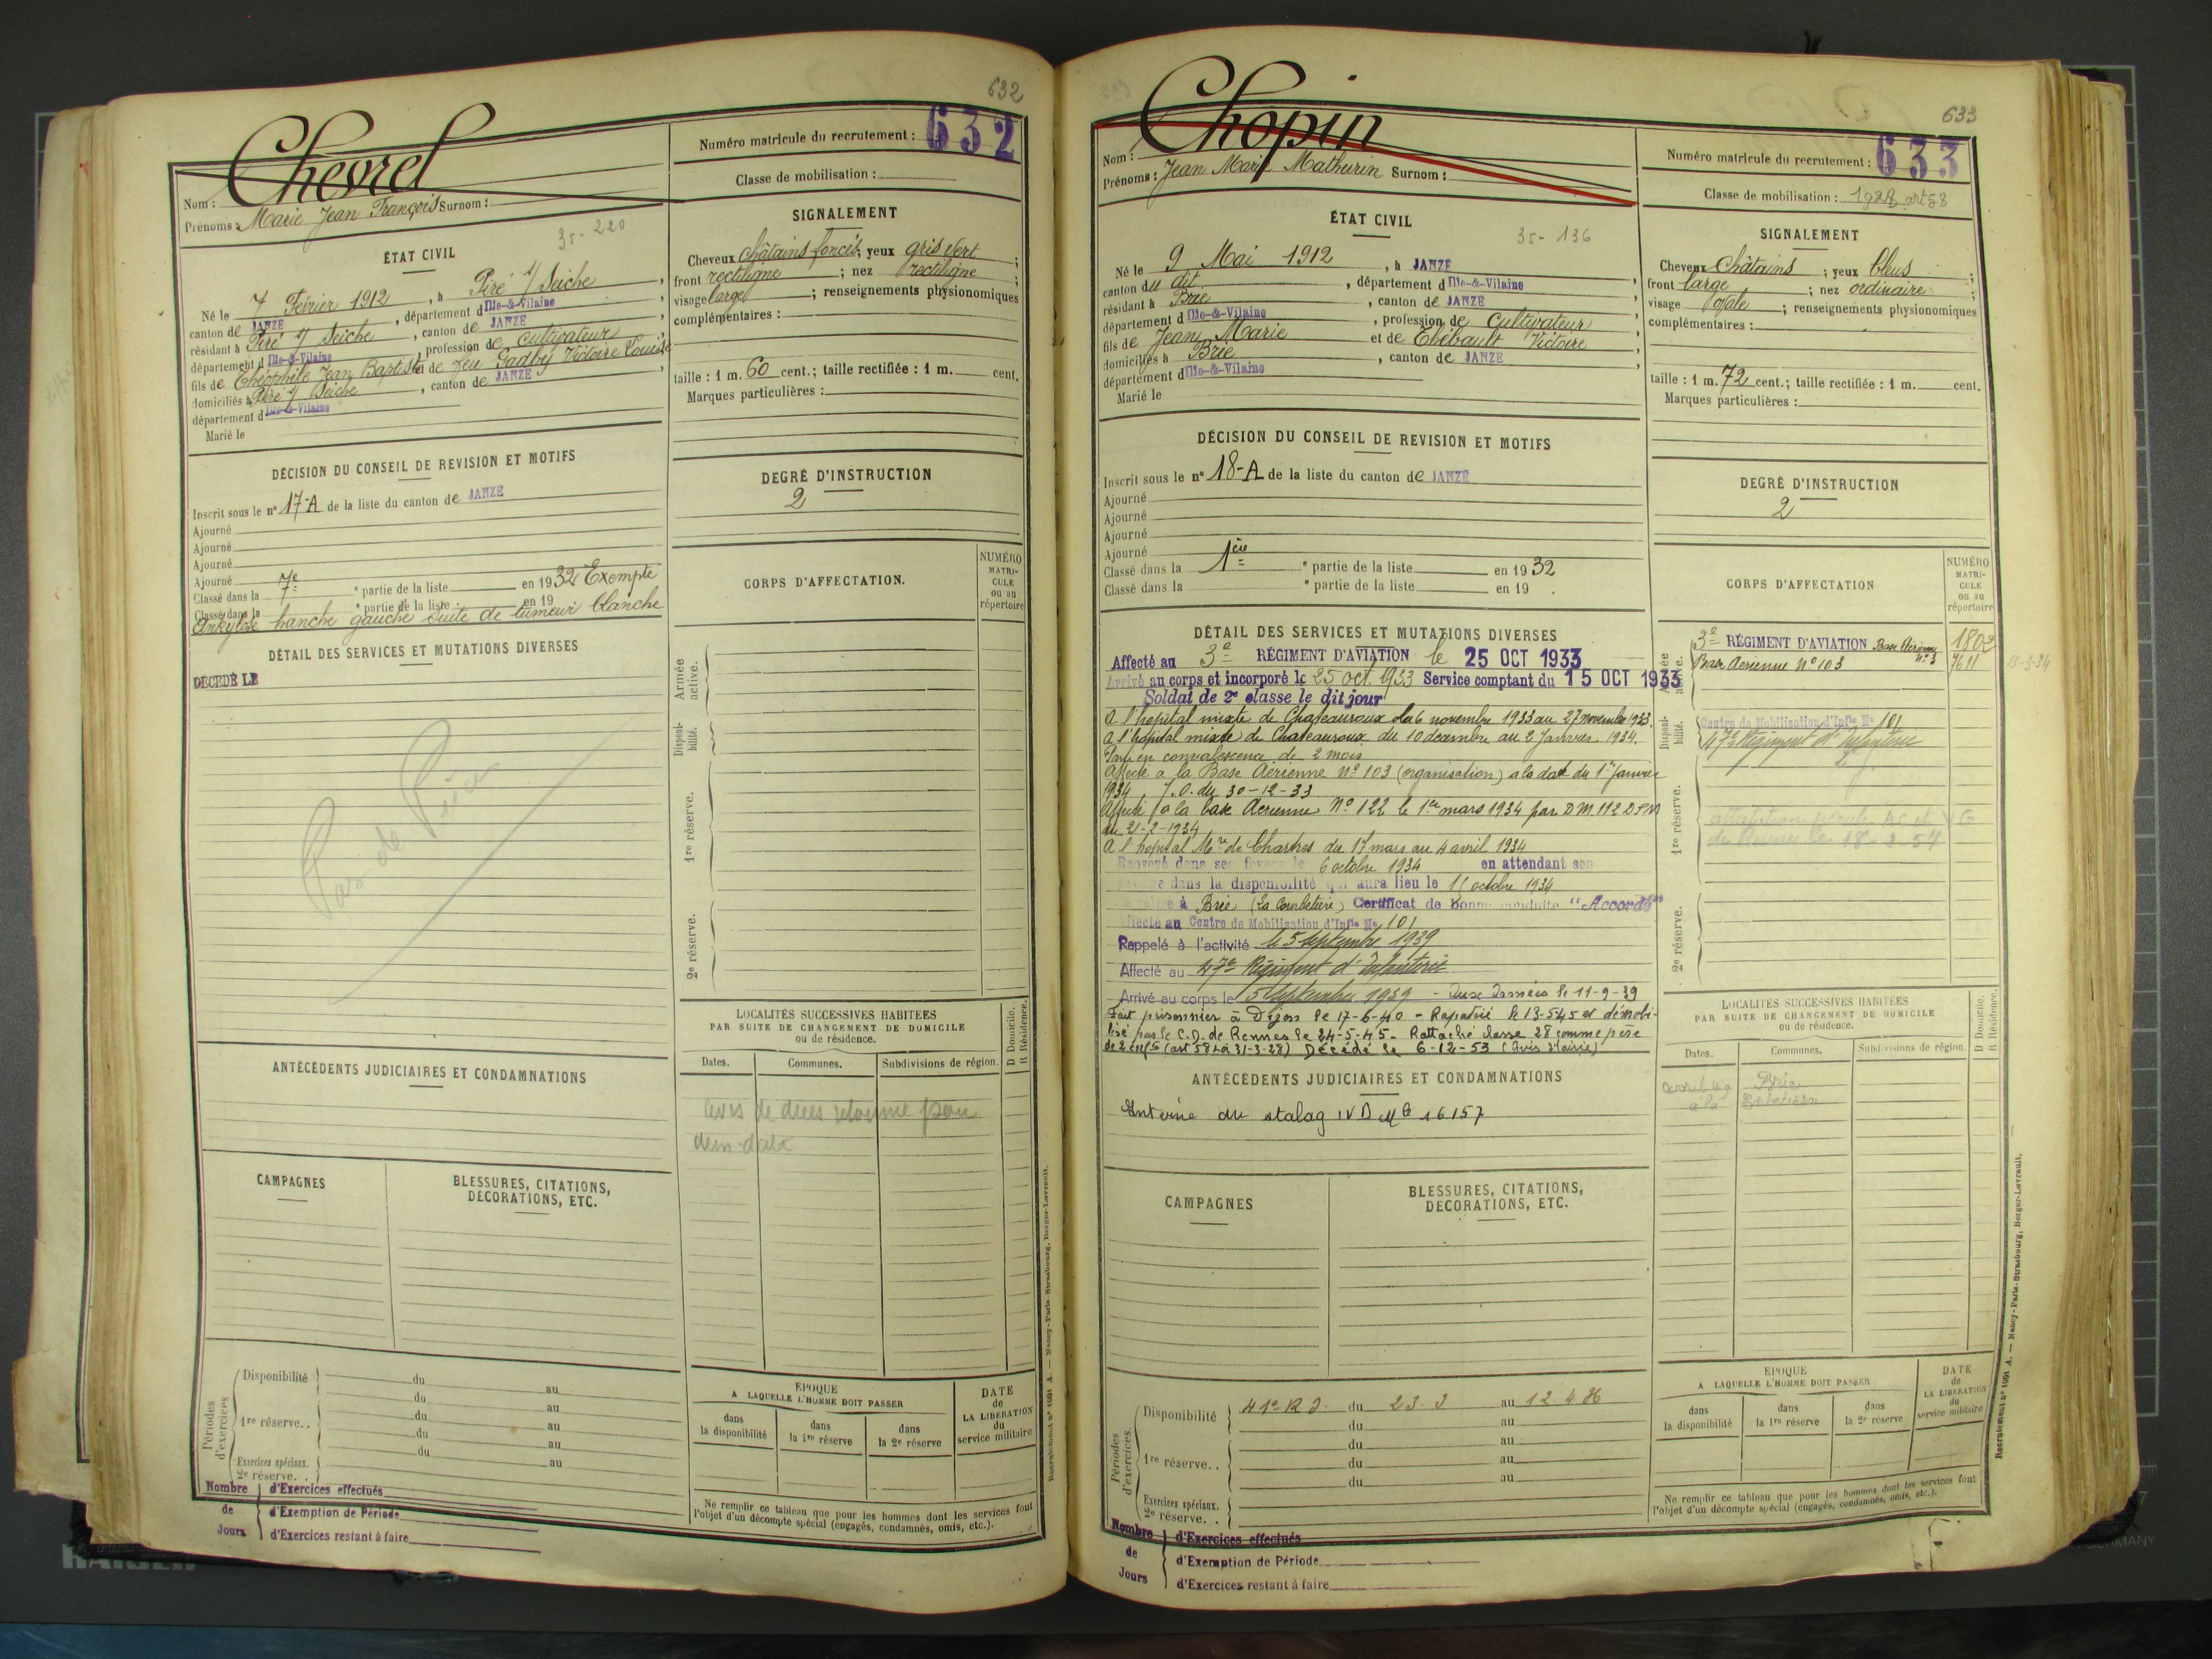 632
Chevrel
Nom :
Prénoms : Marie Jean François Surnom :
Numéro matricule du recrutement : 632
Classe de mobilisation :
35-220
ÉTAT CIVIL
Né le 7 Février 1912, à Piré s/ Seiche,
canton de JANZE, département d'Ille-&-Vilaine,
résidant à Piré s/ Seiche, canton de JANZE,
département d'Ille-&-Vilaine, profession de cultivateur,
fils de Théophile Jean Baptiste et de feu Gadby Victoire Louise
domiciliés à Piré s/ Seiche, canton de JANZE,
département d'Ille-&-Vilaine
Marié le
SIGNALEMENT
Cheveux châtains foncés; yeux gris vert;
front rectiligne; nez rectiligne;
visage large; renseignements physionomiques
complémentaires :
taille : 1 m. 60 cent.; taille rectifiée : 1 m. cent.
Marques particulières :
DÉCISION DU CONSEIL DE REVISION ET MOTIFS
Inscrit sous le n° 17-A de la liste du canton de JANZE
Ajourné
Ajourné
Ajourné
Ajourné
Classé dans la 7e partie de la liste en 1932 Exempté
Classé dans la partie de la liste en 19
Ankylose hanche gauche suite de tumeur blanche
DEGRÉ D'INSTRUCTION
2
DÉTAIL DES SERVICES ET MUTATIONS DIVERSES
DÉCÉDÉ LE
Pas de
CORPS D'AFFECTATION.
NUMÉRO MATRI-CULE ou au répertoire
Armée active.
Disponi-bilité.
1re réserve.
2e réserve.
ANTÉCÉDENTS JUDICIAIRES ET CONDAMNATIONS
LOCALITÉS SUCCESSIVES HABITÉES
PAR SUITE DE CHANGEMENT DE DOMICILE
ou de résidence.
D Domicile. R Résidence.
Dates. Communes. Subdivisions de région.
CAMPAGNES
BLESSURES, CITATIONS,
DÉCORATIONS, ETC.
Périodes d'exercices
Disponibilité du au
du au
1re réserve.. du au
du au
du au
Exercices spéciaux.
2e réserve. .
Nombre de Jours
d'Exercices effectués
d'Exemption de Période
d'Exercices restant à faire
ÉPOQUE
A LAQUELLE L'HOMME DOIT PASSER
dans la disponibilité
dans la 1re réserve
dans la 2e réserve
DATE de LA LIBÉRATION du service militaire
Ne remplir ce tableau que pour les hommes dont les services font
l'objet d'un décompte spécial (engagés, condamnés, omis, etc.).
Recrutement n° 1001 A. — Nancy-Paris-Strasbourg, Berger-Levrault.
633
Chopin
Nom :
Prénoms : Jean Marie Mathurin Surnom :
Numéro matricule du recrutement : 633
Classe de mobilisation : 1928 art 58
35-136
ÉTAT CIVIL
Né le 9 Mai 1912, à JANZE
canton du dit, département d'Ille-&-Vilaine,
résidant à Brie, canton de JANZE
département d'Ille-&-Vilaine, profession de cultivateur
fils de Jean Marie et de Thébault Victoire
domiciliés à Brie, canton de JANZE,
département d'Ille-&-Vilaine
Marié le
SIGNALEMENT
Cheveux Châtains; yeux bleus;
front large; nez ordinaire;
visage ovale; renseignements physionomiques
complémentaires :
taille : 1 m. 72 cent.; taille rectifiée : 1 m. cent.
Marques particulières :
DÉCISION DU CONSEIL DE REVISION ET MOTIFS
Inscrit sous le n° 18-A de la liste du canton de JANZE
Ajourné
Ajourné
Ajourné
Ajourné
Classé dans la 1ère partie de la liste en 1932
Classé dans la partie de la liste en 19 .
DEGRÉ D'INSTRUCTION
2
DÉTAIL DES SERVICES ET MUTATIONS DIVERSES
Affecté au 3e RÉGIMENT D'AVIATION le 25 OCT 1933
Arrivé au corps et incorporé le 25 oct. 1933 Service comptant du 15 OCT 1933
Soldat de 2e classe le dit jour
A l'hôpital mixte de Chateauroux du 6 novembre 1933 au 27 novembre 1933.
A l'hôpital mixte de Chateauroux du 10 decembre au 2 Janvier 1934.
Parti en convalescence de 2 mois
Affecté à la Base Aérienne N° 103 (organisation) a la date du 1er Janvier
1934. J.O. du 30-12-33
Affecté à la base Aerienne N° 122 le 1er mars 1934 par DM.112 DPM
du 21-2-1934
A l'hopital Mre de Chartres du 17 mars au 4 avril 1934
Renvoyé dans ses foyers le 6 octobre 1934 en attendant son
passage dans la disponibilité qui aura lieu le 15 octobre 1934
Se retire à Brie (La Courbetière) Certificat de bonne conduite "Accordé"
Affecté au Centre de Mobilisation d'Infie No 101
Rappelé à l'activité le 5 septembre 1939
Affecté au 47e Régiment d'Infanterie
Arrivé au corps le 5 septembre 1939 - aux Armées le 11-9-39
Fait prisonnier à Dijon le 17-6-40 - Rapatrié le 13-5-45 et démobi-
lisé par le C.D. de Rennes le 24-5-45. Rattaché classe 28 comme père
de 2 enfts (art 58 Loi 31-3-28) Décédé le 6-12-53 (Avis Mairie)
CORPS D'AFFECTATION
NUMÉRO MATRI-CULE ou au répertoire
Armée active.
3e RÉGIMENT D'AVIATION Base Aérienne n° 3 1802
Base Aerienne N° 103 7611
Disponi-bilité.
Centre de Mobilisation d'Infie No 101
47e Régiment d'Infanterie
1re réserve.
de Rennes le 18-2-54
2e réserve.
ANTÉCÉDENTS JUDICIAIRES ET CONDAMNATIONS
Interné au stalag IV D Mle 16157
LOCALITÉS SUCCESSIVES HABITÉES
PAR SUITE DE CHANGEMENT DE DOMICILE
ou de résidence.
D Domicile. R Résidence.
Dates. Communes. Subdivisions de région.
Brie
CAMPAGNES
BLESSURES, CITATIONS,
DÉCORATIONS, ETC.
Périodes d'exercices.
Disponibilité 41e R I. du 23.3 au 12.4 36
du au
1re réserve.. du au
du au
du au
Exercices spéciaux.
2e réserve. .
Nombre de Jours
d'Exercices effectués
d'Exemption de Période
d'Exercices restant à faire
ÉPOQUE
A LAQUELLE L'HOMME DOIT PASSER
dans la disponibilité
dans la 1re réserve
dans la 2e réserve
DATE de LA LIBÉRATION du service militaire
Ne remplir ce tableau que pour les hommes dont les services font
l'objet d'un décompte spécial (engagés, condamnés, omis, etc.).
Recrutement n° 1001 A. — Nancy-Paris-Strasbourg, Berger-Levrault.